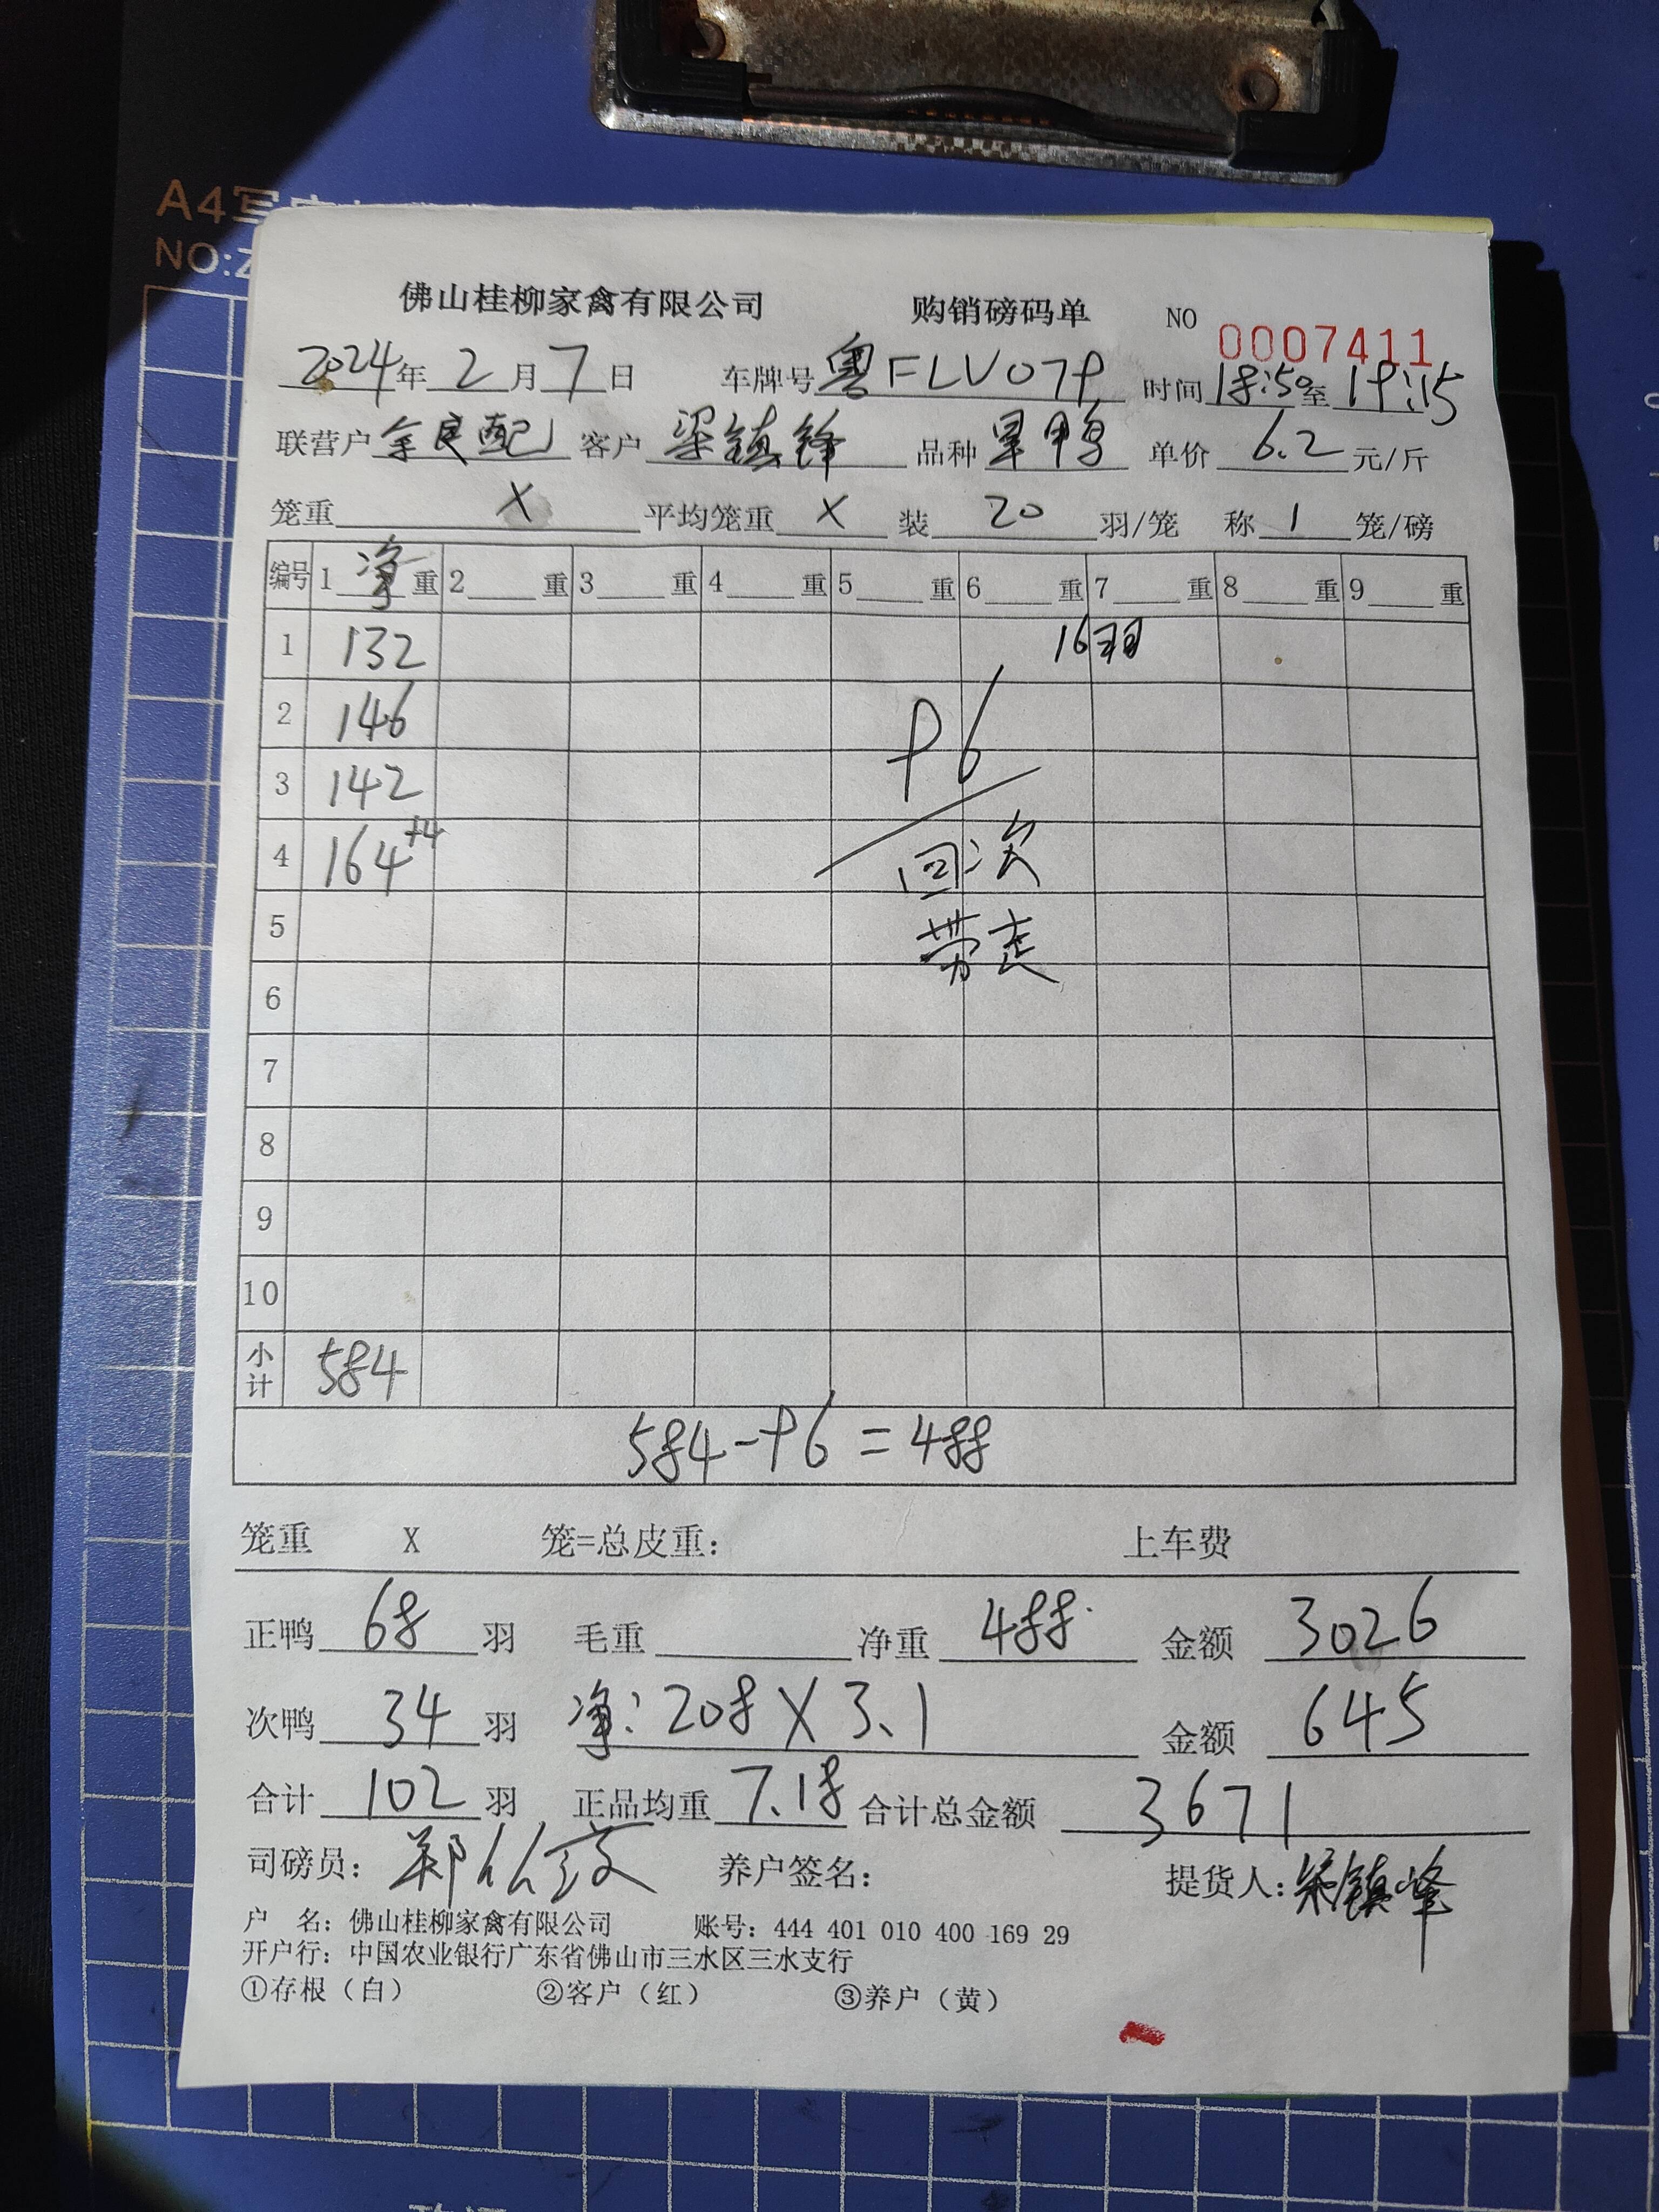 A4写
NO:Z
佛山桂柳家禽有限公司 购销磅码单 NO 0007411
2024年2月7日 车牌号粤FLV079 时间18:50至19:15
联营户余良配 客户梁镇锋 品种旱鸭 单价6.2元/斤
笼重X 平均笼重X 装20羽/笼 称1笼/磅
编号 1净重 2重 3重 4重 5重 6重 7重 8重 9重
1 132 16羽
2 146 96
3 142
4 164+4 回次
5 带走
6
7
8
9
10
小计 584
584-96=488
笼重 X 笼=总皮重: 上车费
正鸭68羽 毛重 净重488 金额3026
次鸭34羽 净:208X3.1 金额645
合计102羽 正品均重7.18 合计总金额3671
司磅员:郑 养户签名: 提货人:梁镇峰
户 名:佛山桂柳家禽有限公司 账号:444 401 010 400 169 29
开户行:中国农业银行广东省佛山市三水区三水支行
①存根(白) ②客户(红) ③养户(黄)